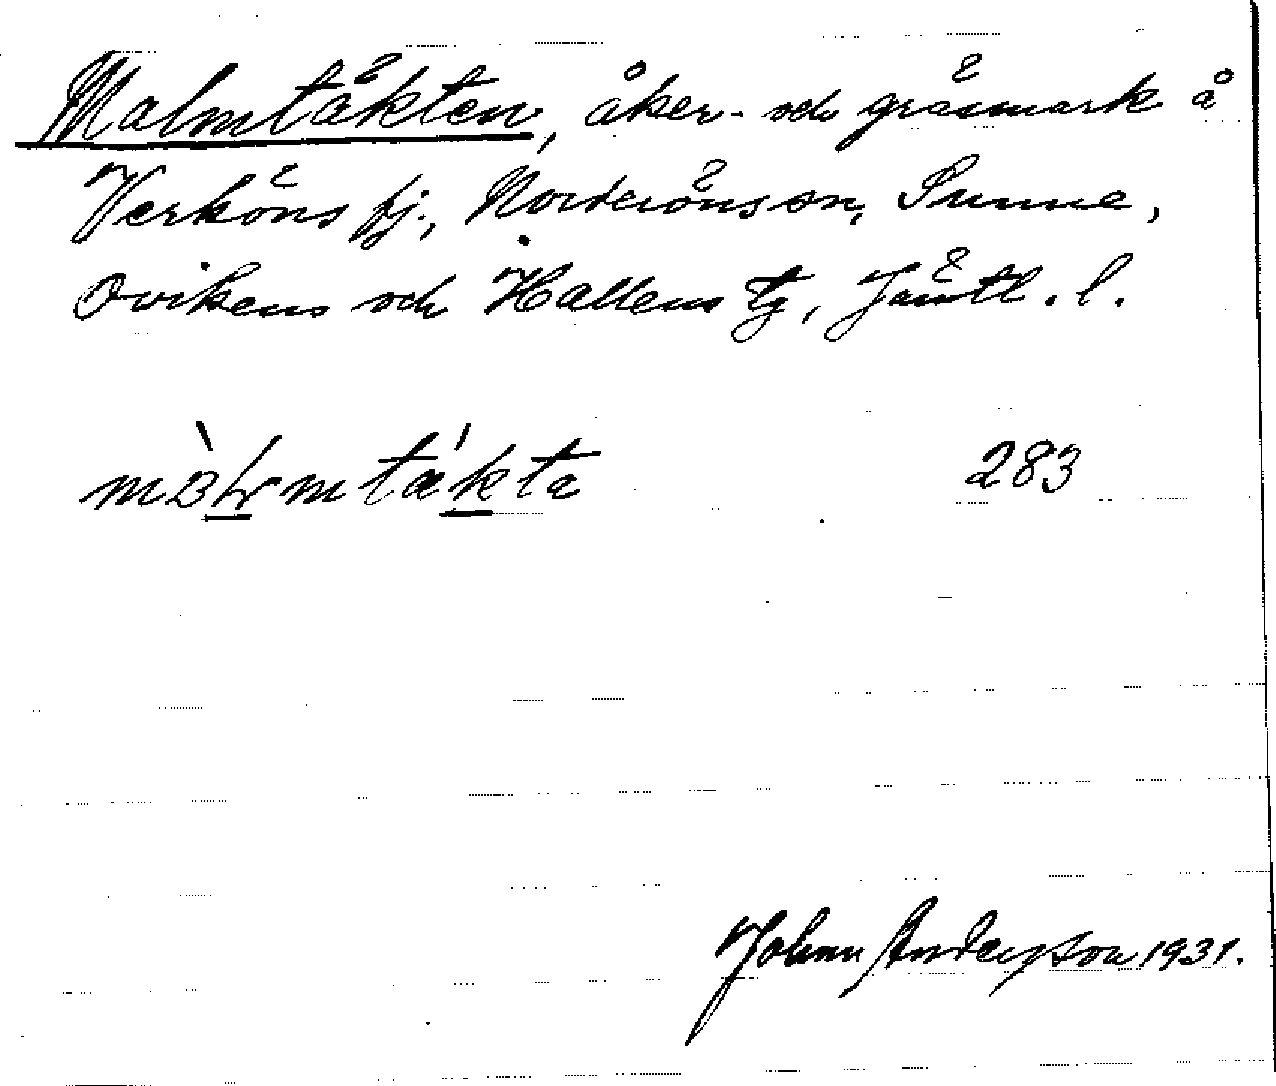 Malmtäkten, åker- och gräsmark å
Verköns fj., Norderöns sn, Sunne,
Ovikens och Hallens tg, Jämtl. l.
283
Johan Anderson 1931.